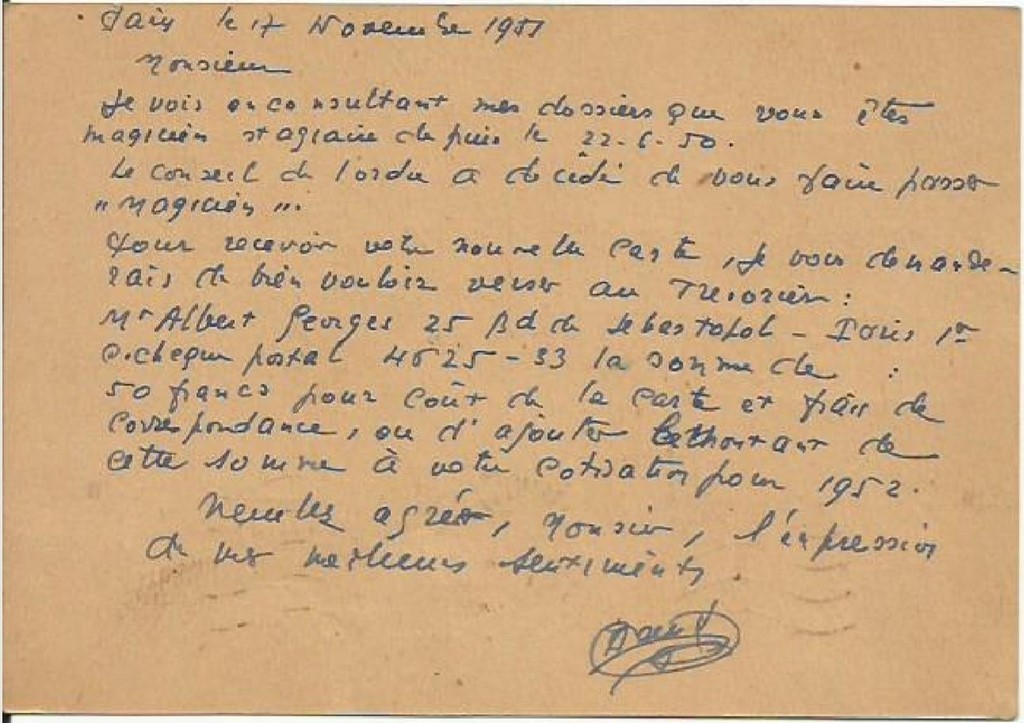 Paris le 17 Novembre 1951
Monsieur
Je vois en consultant mes dossiers que vous êtes
magicien stagiaire depuis le 22-6-50.
Le conseil de l'ordre a décidé de vous faire passer
"magicien".
Pour recevoir votre nouvelle carte, je vous demande-
rais de bien vouloir verser au Trésorier :
Mr Albert Georges 25 Bd de Sebastopol - Paris 1er
c. cheque postal 4625-33 la somme de :
50 francs pour coût de la carte et frais de
correspondance, ou d'ajouter le montant de
cette somme à votre cotisation pour 1952.
Veuillez agréer, Monsieur, l'expression
de mes meilleurs sentiments